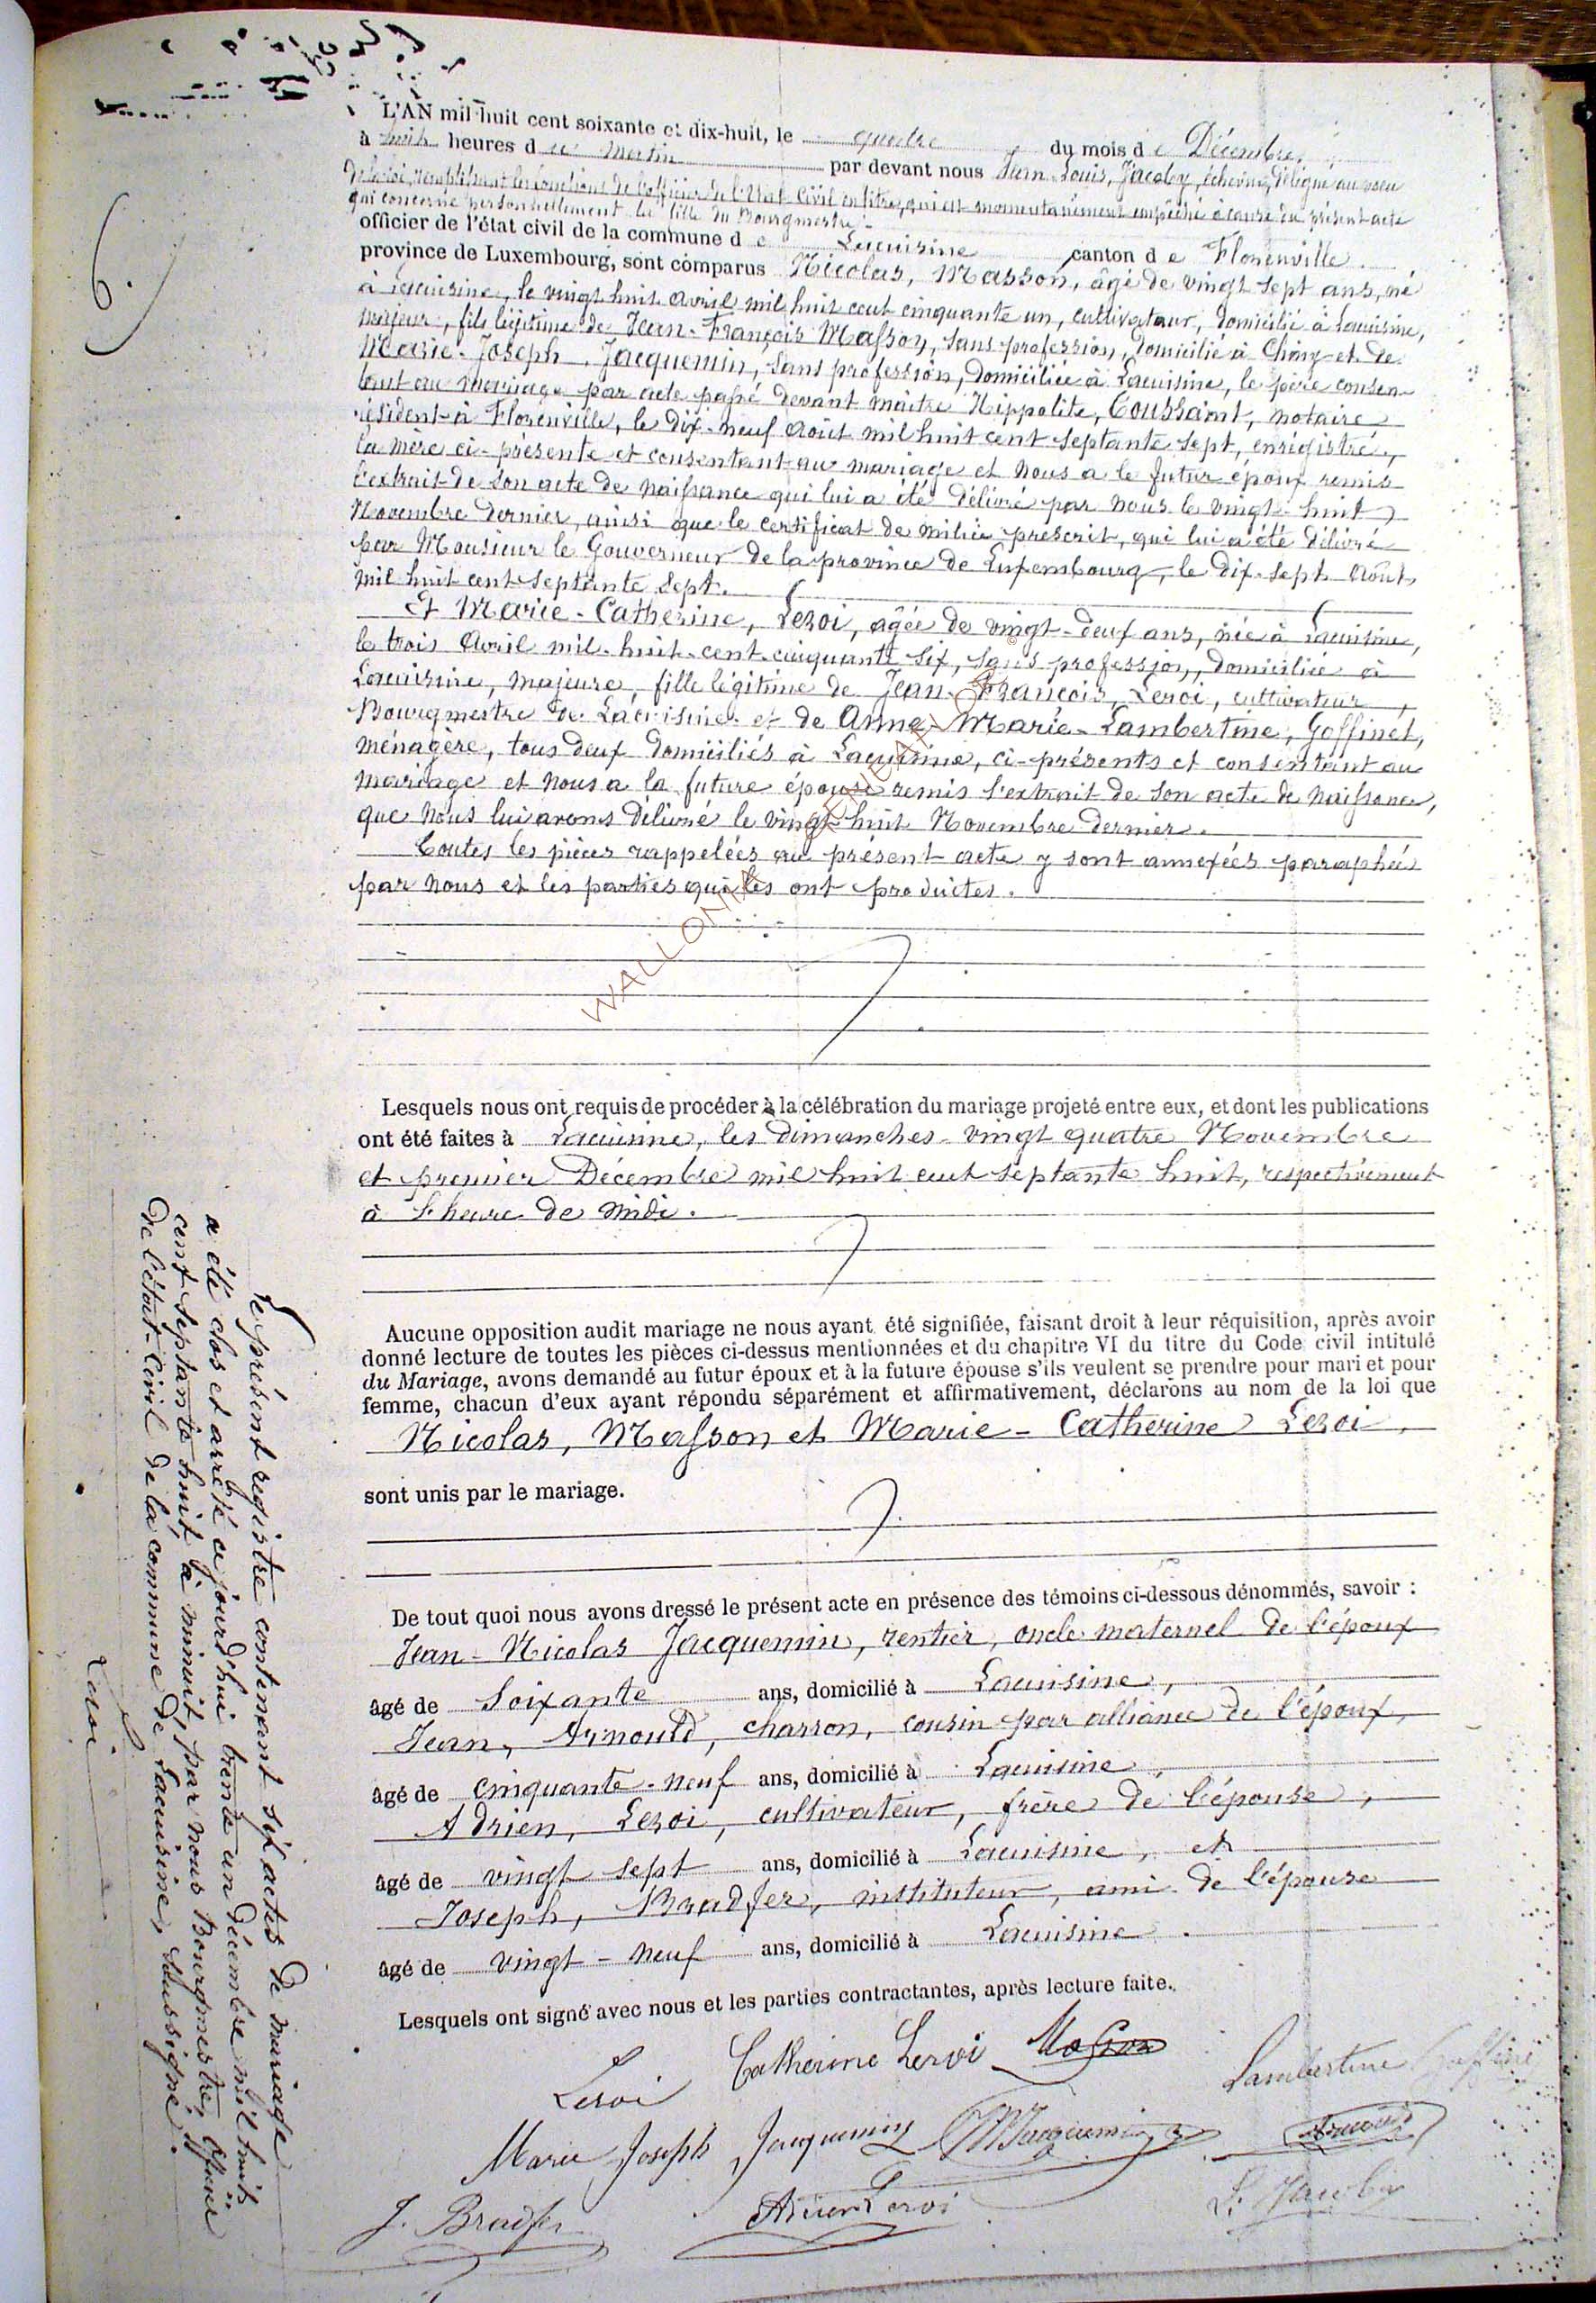 6.
L'AN mil huit cent soixante et dix-huit, le quatre du mois de Décembre,
à huit heures du matin par devant nous Jean Louis, Jacoby, échevin, délégué au vœu
de la loi, remplissant les fonctions de l'officier de l'état Civil en titre, qui est momentanément empêché à cause du présent acte
qui concerne personnellement la fille du Bourgmestre
officier de l'état civil de la commune de Lacuisine canton de Florenville
province de Luxembourg, sont comparus Nicolas, Masson, âgé de vingt sept ans, né
à Lacuisine, le vingt huit Avril mil huit cent cinquante un, cultivateur, domicilié à Lacuisine,
majeur, fils légitime de Jean-François Masson, sans profession, domicilié à Chiny et de
Marie-Joseph, Jacquemin, sans profession, domiciliée à Lacuisine, le père consen-
tant au mariage par acte passé devant maître Hippolite, Toussaint, notaire
résident à Florenville, le dix-neuf Août mil huit cent septante sept, enrégistré,
la mère ci-présente et consentant au mariage et nous a le futur époux remis
l'extrait de son acte de naissance qui lui a été délivré par nous le vingt huit
Novembre dernier, ainsi que le certificat de milice prescrit, qui lui a été délivré
par Monsieur le Gouverneur de la province de Luxembourg, le dix-sept Août
mil huit cent septante sept.
Et Marie-Catherine, Leroi, agée de vingt-deux ans, née à Lacuisine,
le trois Avril mil-huit-cent-cinquante six, sans profession, domiciliée à
Lacuisine, majeure, fille légitime de Jean-François, Leroi, cultivateur,
Bourgmestre de Lacuisine et de Anne-Marie-Lambertine, Goffinet,
ménagère, tous deux domiciliés à Lacuisine, ci-présents et consentant au
mariage et nous a la future épouse remis l'extrait de son acte de naissance,
que nous lui avons délivré le vingt huit Novembre dernier.
Toutes les pièces rappelées au présent acte y sont annexées paraphées
par nous et les parties qui les ont produites.
WALLONIA
Lesquels nous ont requis de procéder à la célébration du mariage projeté entre eux, et dont les publications
ont été faites à Lacuisine, les Dimanches vingt quatre Novembre
et premier Décembre mil huit cent septante huit, respectivement
à l'heure de midi.
Aucune opposition audit mariage ne nous ayant été signifiée, faisant droit à leur réquisition, après avoir
donné lecture de toutes les pièces ci-dessus mentionnées et du chapitre VI du titre du Code civil intitulé
du Mariage, avons demandé au futur époux et à la future épouse s'ils veulent se prendre pour mari et pour
femme, chacun d'eux ayant répondu séparément et affirmativement, déclarons au nom de la loi que
Nicolas, Masson et Marie-Catherine Leroi,
sont unis par le mariage.
De tout quoi nous avons dressé le présent acte en présence des témoins ci-dessous dénommés, savoir :
Jean-Nicolas Jacquemin, rentier, oncle maternel de l'époux
âgé de soixante ans, domicilié à Lacuisine,
Jean, Arnould, charron, cousin par alliance de l'époux,
âgé de cinquante-neuf ans, domicilié à Lacuisine,
Adrien, Leroi, cultivateur, frère de l'épouse,
âgé de vingt sept ans, domicilié à Lacuisine, et
Joseph, Bradfer, instituteur, ami de l'épouse
âgé de vingt-neuf ans, domicilié à Lacuisine.
Lesquels ont signé avec nous et les parties contractantes, après lecture faite.
Leroi Catherine Leroi Masson Lambertine Goffinet
Marie Joseph Jacquemin Jacquemin Arnould
J. Bradfer Adrien Leroi L. Jacoby
Le présent registre contenant six actes de mariage
a été clos et arrêté ce jourd'hui trente un décembre mil huit
cent septante huit, à minuit, par nous Bourgmestre, officier
de l'état-civil de la commune de Lacuisine, soussigné.
Leroi